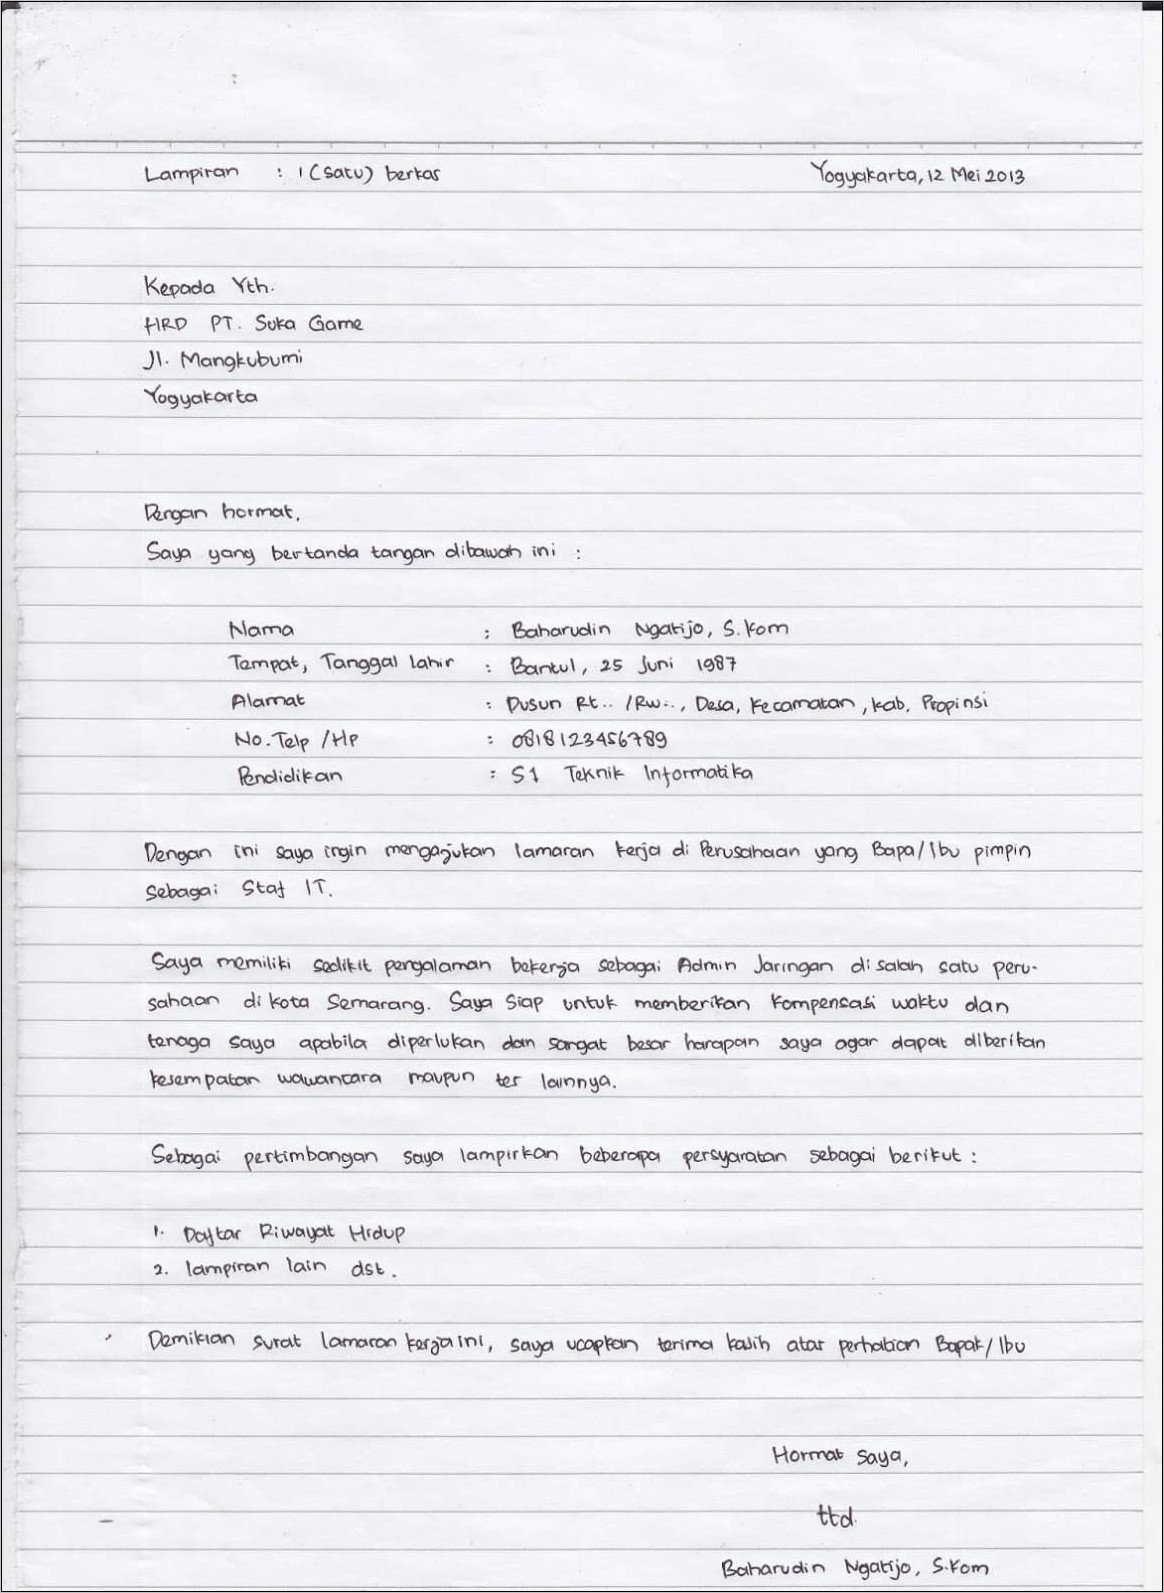 Lampiran : 1 (Satu) berkas Yogyakarta, 12 Mei 2013
Kepada Yth.
HRD PT. Suka Game
Jl. Mangkubumi
Yogyakarta
Dengan hormat,
Saya yang bertanda tangan dibawah ini :
Nama : Baharudin Ngatijo, S.Kom
Tempat, Tanggal lahir : Bantul, 25 Juni 1987
Alamat : Dusun Rt.. /Rw.., Desa, Kecamatan, kab, Propinsi
No. Telp /Hp : 0818123456789
Pendidikan : S1 Teknik Informatika
Dengan ini saya ingin mengajukan lamaran kerja di Perusahaan yang Bapa/Ibu pimpin
sebagai Staf IT.
Saya memiliki sedikit pengalaman bekerja sebagai Admin Jaringan di salah satu peru-
sahaan di kota Semarang. Saya siap untuk memberikan kompensasi waktu dan
tenaga saya apabila diperlukan dan sangat besar harapan saya agar dapat diberikan
kesempatan wawancara maupun tes lainnya.
Sebagai pertimbangan saya lampirkan beberapa persyaratan sebagai berikut :
1. Daftar Riwayat Hidup
2. lampiran lain dst.
Demikian surat lamaran kerja ini, saya ucapkan terima kasih atas perhatian Bapak/Ibu
Hormat saya,
ttd.
Baharudin Ngatijo, S.Kom